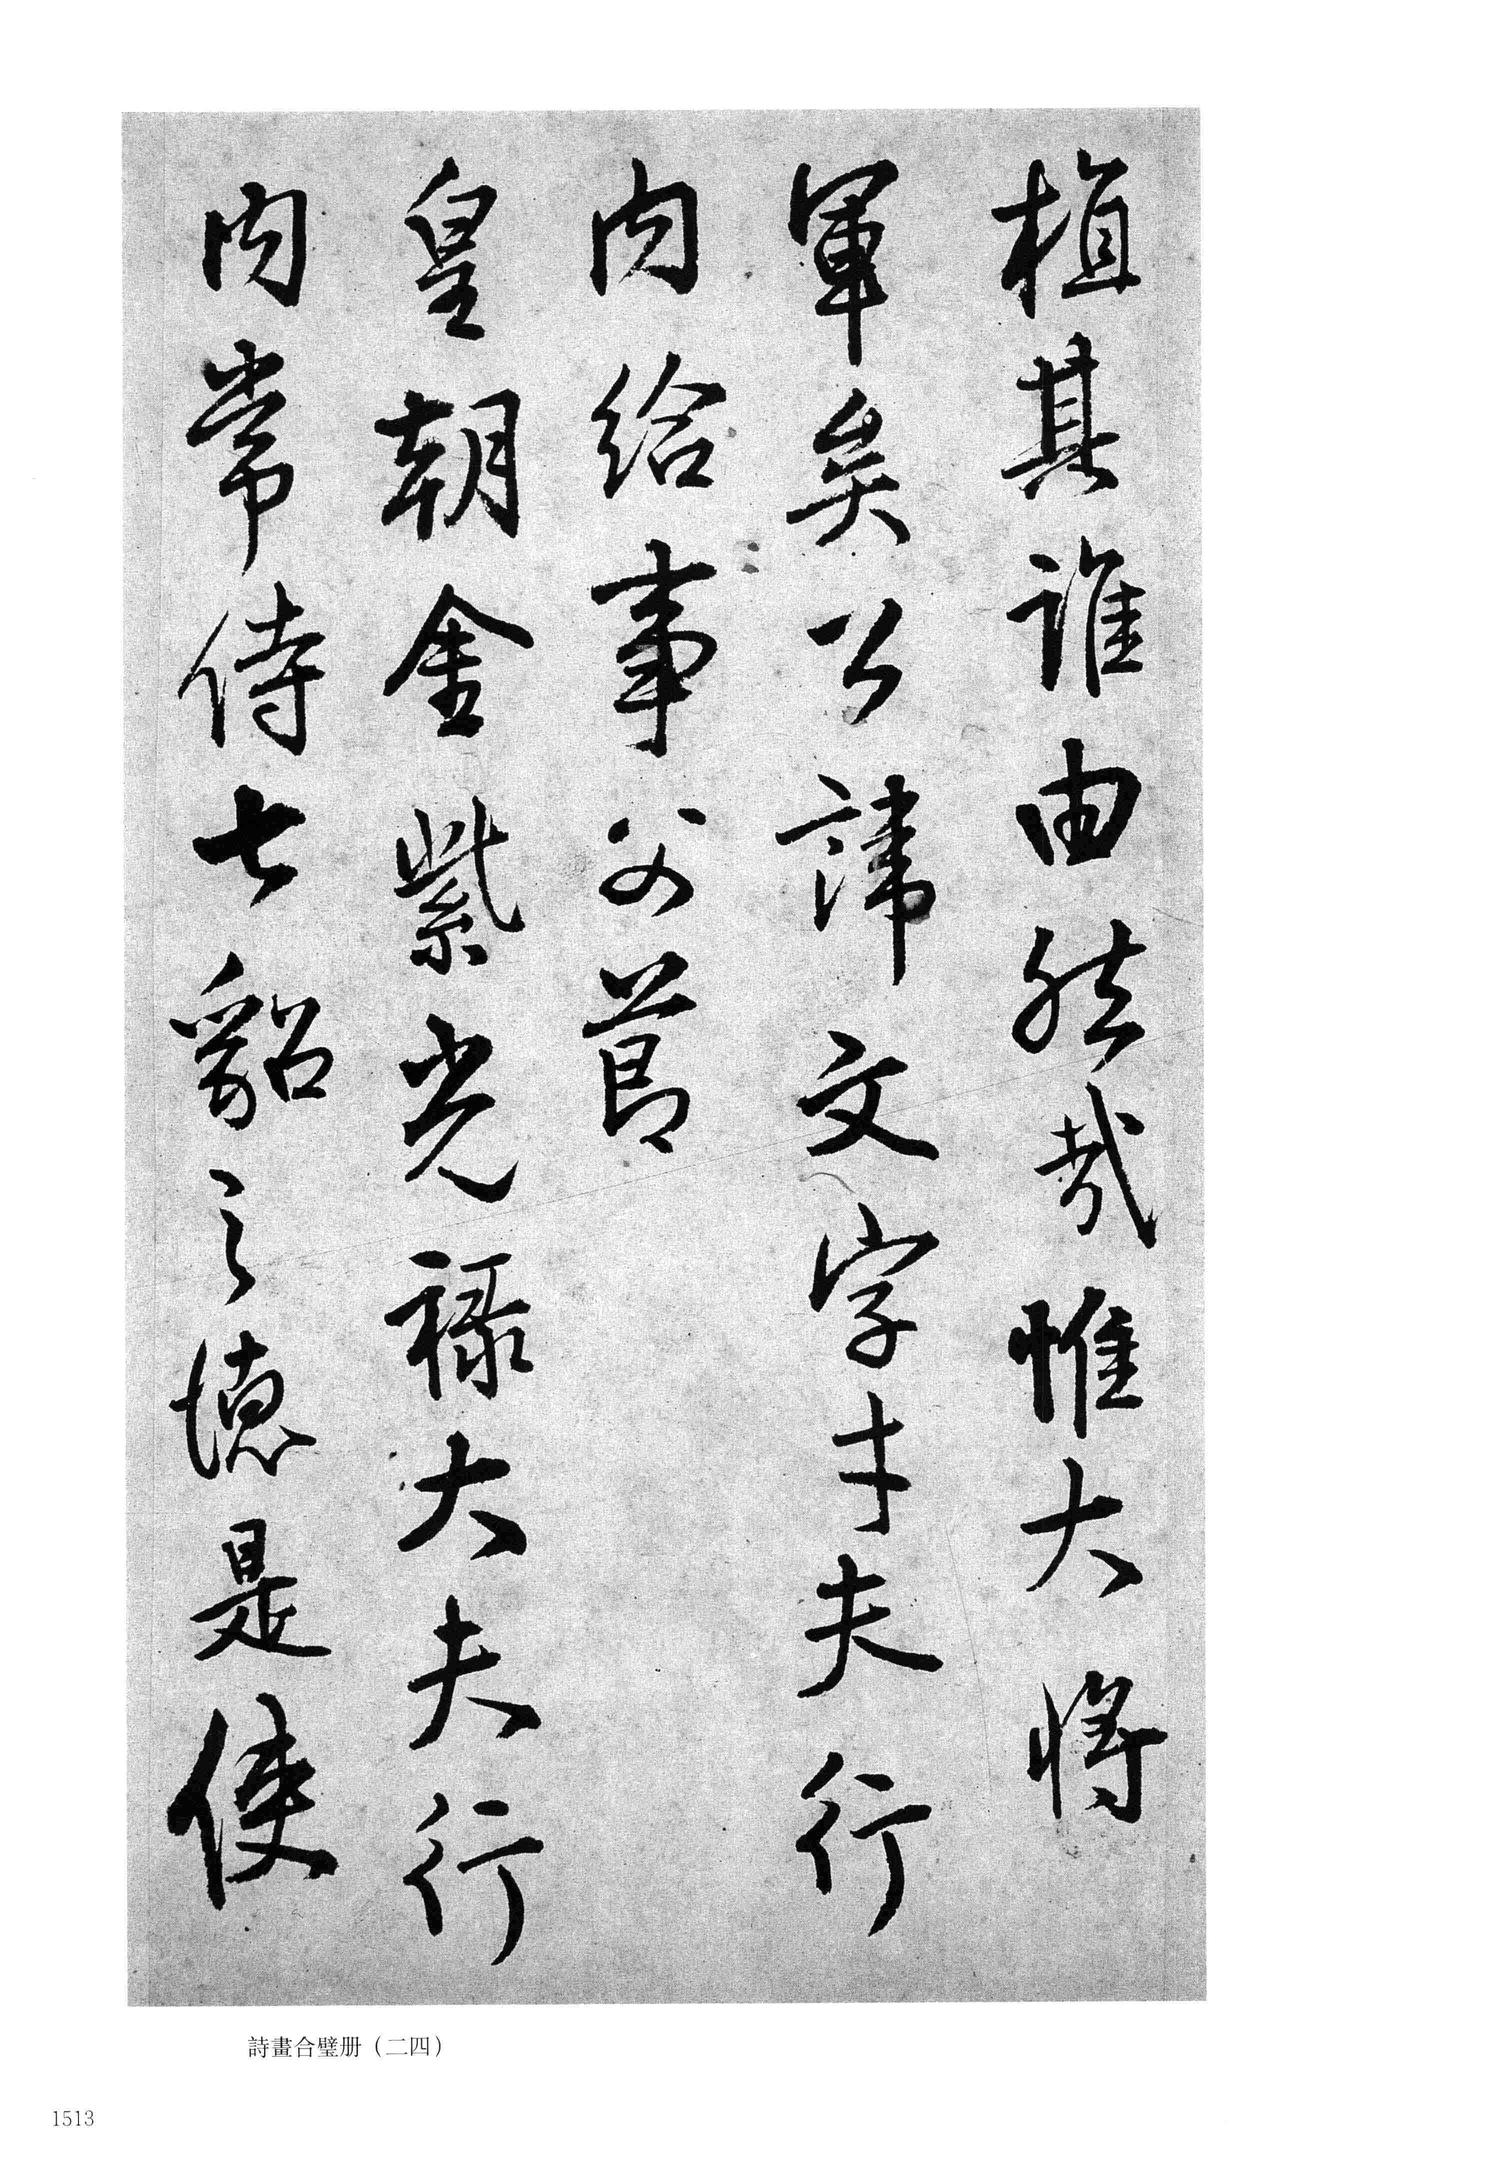 植其誰由然哉惟大將
軍矣公諱文字才夫行
內給事父節
皇朝金紫光祿大夫行
內常侍七貂之德是使
詩畫合璧册（二四）
1513